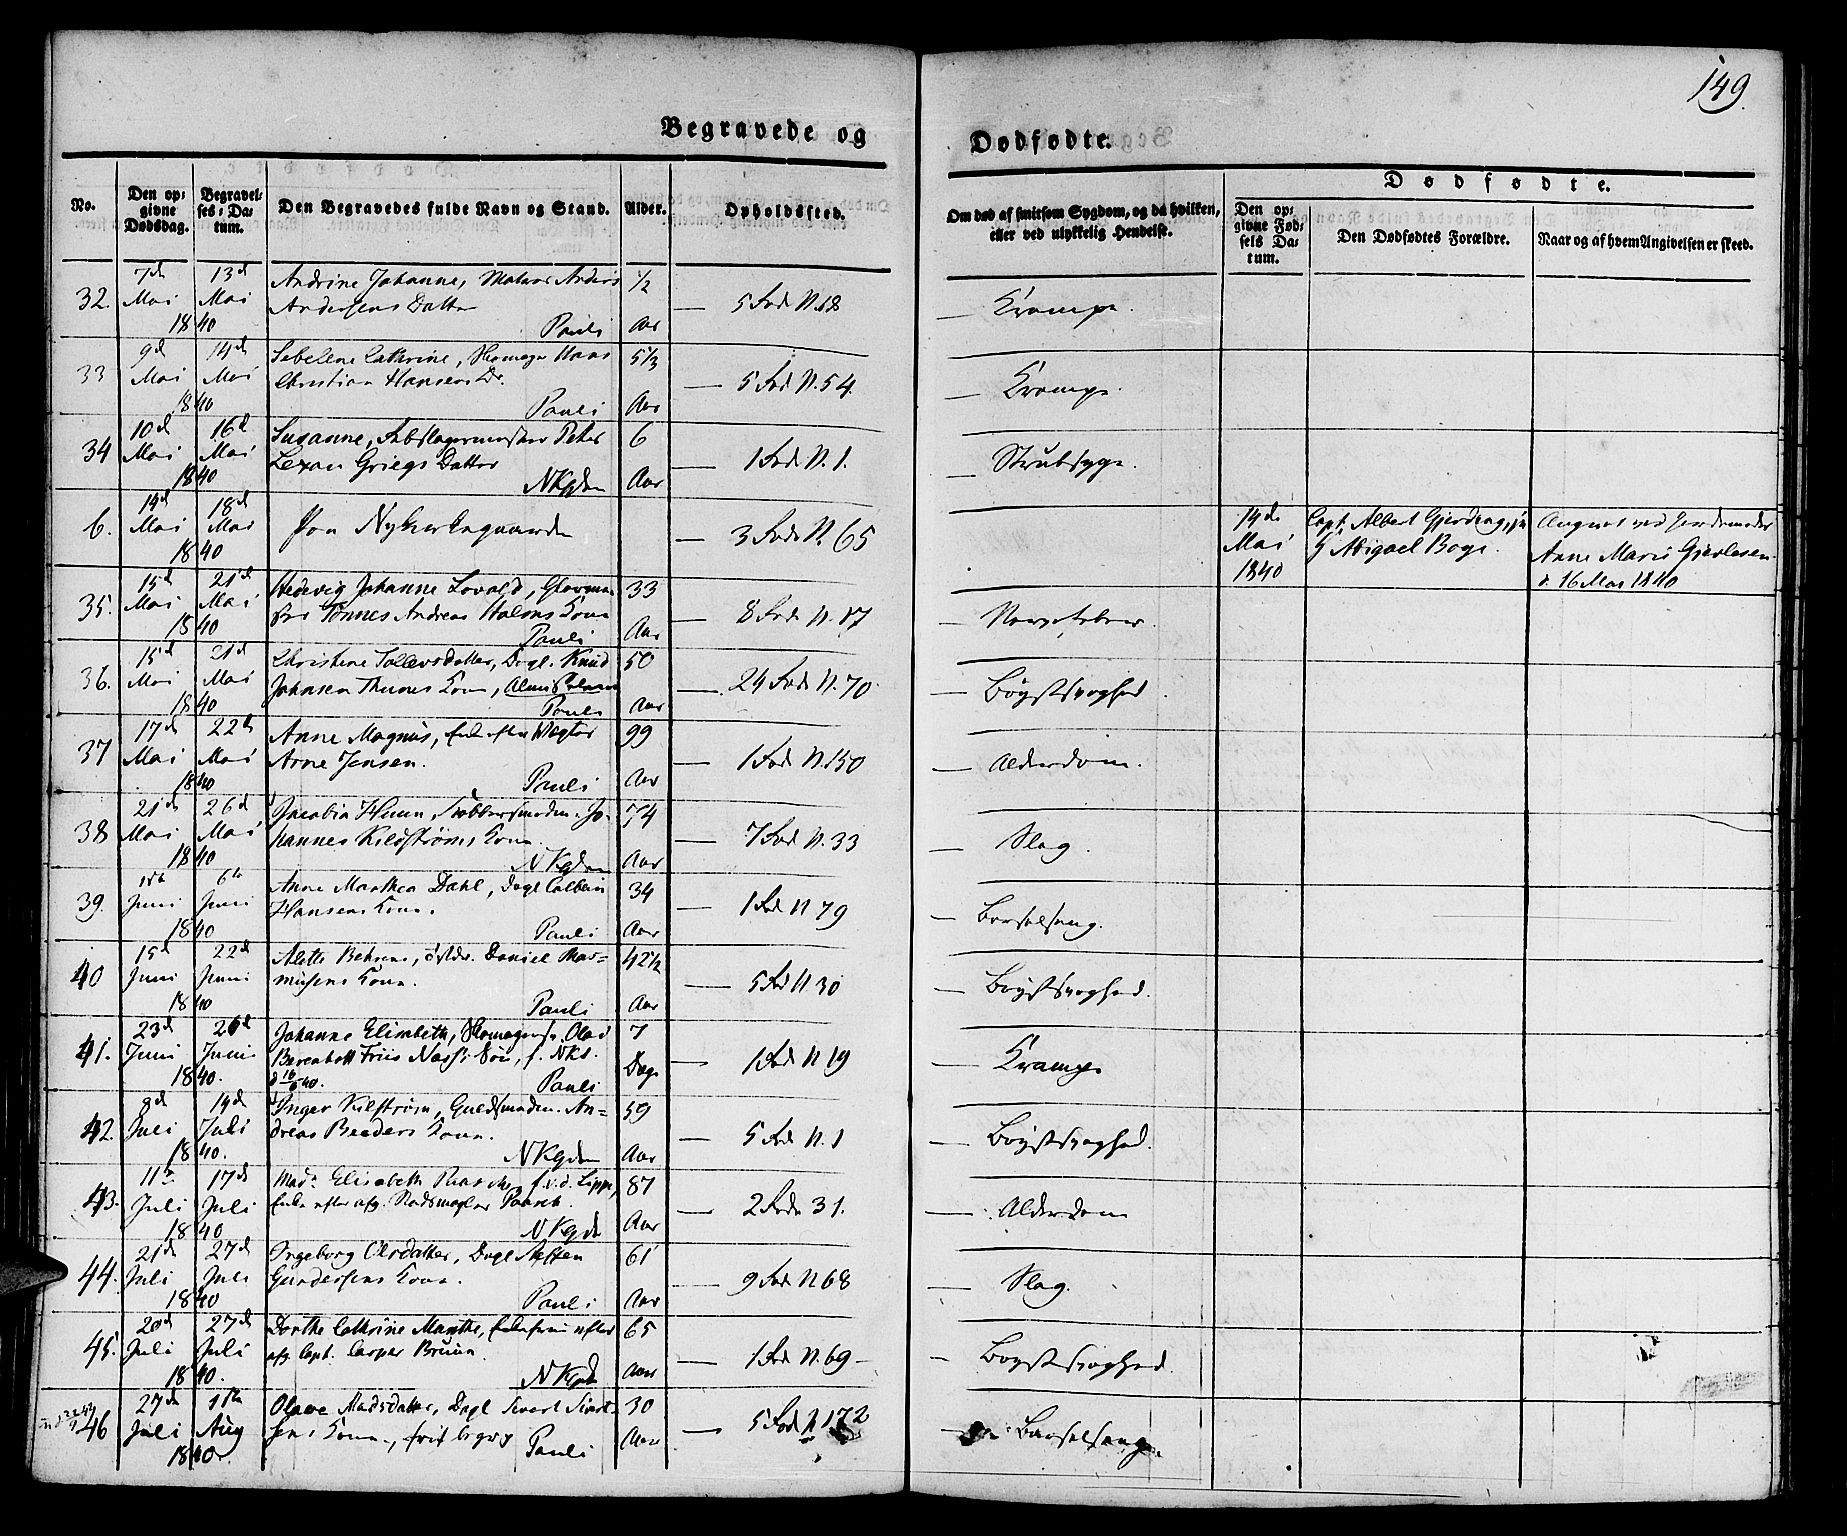 149.
Begravede og Dødfødte.
No.
Den opgivne Dødsdag.
Begravelses-Datum.
Den Begravedes fulde Navn og Stand.
Alder.
Opholdssted.
Om død af smitsom Sygdom, og da hvilken, eller ved ulykkelig Hendelse.
Dødfødte.
Den opgivne Fødsels Datum.
Den Dødfødtes Forældre.
Naar og af hvem Angivelsen er skeed.
32. 7de Mai 13de Mai 1840
Andrine Johanne, Anders
Andersens Datter
Pauli
1/2 Aar
— 5 Rode N. 18
— Krampe.
33 9de Mai 14de Mai 1840
Sebelene Cathrine, Skomager Hans
Christian Hansens Dr.
Pauli
5 1/3 Aar
— 5 Rode N. 54.
— Krampe.
34 10de Mai 16de Mai 1840
Susanne, Peter
Lexau Griegs Datter
NKgden
6 Aar
— 1 Rode N. 1.
— Strubsyge.
6. 14de Mai 18de Mai 1840
Paa Nykirkegaarden
— 3 Rode N. 65
14de Mai 1840
Capt. Albert Gjerding,
Abigael Boge.
Angivet ved Jordemoder
Anne Marie
d. 16 Mai 1840
35. 15de Mai 21de Mai 1840
Hedevig Johanne Lovald,
Tønnes Andreas Kone
Pauli
33 Aar
— 8 Rode N. 17
— Nervefeber.
36. 15de Mai 21de Mai 1840
Christine Tollevsdatter, Dagl. Knud
Johnsen Thunes Kone,
Pauli
50 Aar
— 24 Rode N. 70.
— Brystsvaghed.
37 17de Mai 22de Mai 1840
Anne Magnus, Enke efter Vægter
Arne Jensen.
Pauli
99 Aar
— 1 Rode N. 150
— Alderdom.
38 21de Mai 26de Mai 1840
Jacobia Jo-
hannes Kildstrøms Kone.
NKgden
74 Aar
— 7 Rode N. 33
— Slag.
39. Juni 6te Juni 1840
Anne Marthea Dahl, Dagl Colbein
Hansens Kone.
Pauli
34 Aar
— 1 Rode N 79
— Barselseng.
40 15de Juni 22de Juni 1840
Alette Behrens, Daniel Ras-
musens Kone.
Pauli
42 1/2 Aar
— 5 Rode N 30
— Brystsvaghed.
41. 23de Juni 26de Juni 1840.
Johanne Elisabeth, Olai
Friis
Pauli
7 Dage
— 1 Rode N 19
— Krampe
42. 8de Juli 14de Juli 1840.
Inger Kilstrøm, Guldsmeden An-
dreas Beeders Kone.
NKgden
59 Aar
— 5 Rode N. 1
— Brystsvaghed.
43. 11te Juli 17de Juli 1840
Mad. Elisabeth f. v. d. Lippe,
Enke efter afg. Stadsmægler
NKgde
87 Aar
— 2 Rode 31.
— Alderdom
44. 21de Juli 27de Juli 1840
Ingeborg Olsdatter, Dagl Steffen
Gundersens Kone.
Pauli
61 Aar
— 9 Rode N. 68
— Slag.
45. 20de Juli 27de Juli 1840.
Dorthe Cathrine efter
afg. Capt. Casper Bruun.
NKgde
65 Aar
— 1 Rode N. 69 —
— Brystsvaghed.
46 27de Juli 1ste Aug 1840.
Olave Madsdatter, Dagl Sivert Sivert-
sens Kone.,
Pauli
30 Aar
— 5 Rode N 172
— Barselseng.